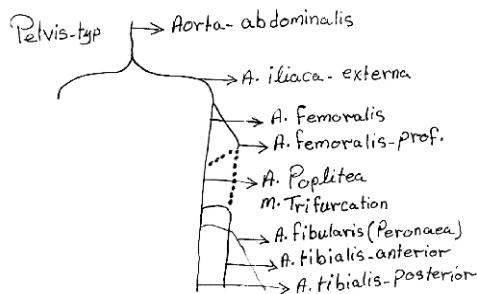 Pelvis-typ
Aorta-abdominalis
A. iliaca-externa
A. Femoralis
A. femoralis-prof.
A. Poplitea
m. Trifurcation
A. fibularis (Peronaea)
A. tibialis-anterior
A. tibialis-posterior